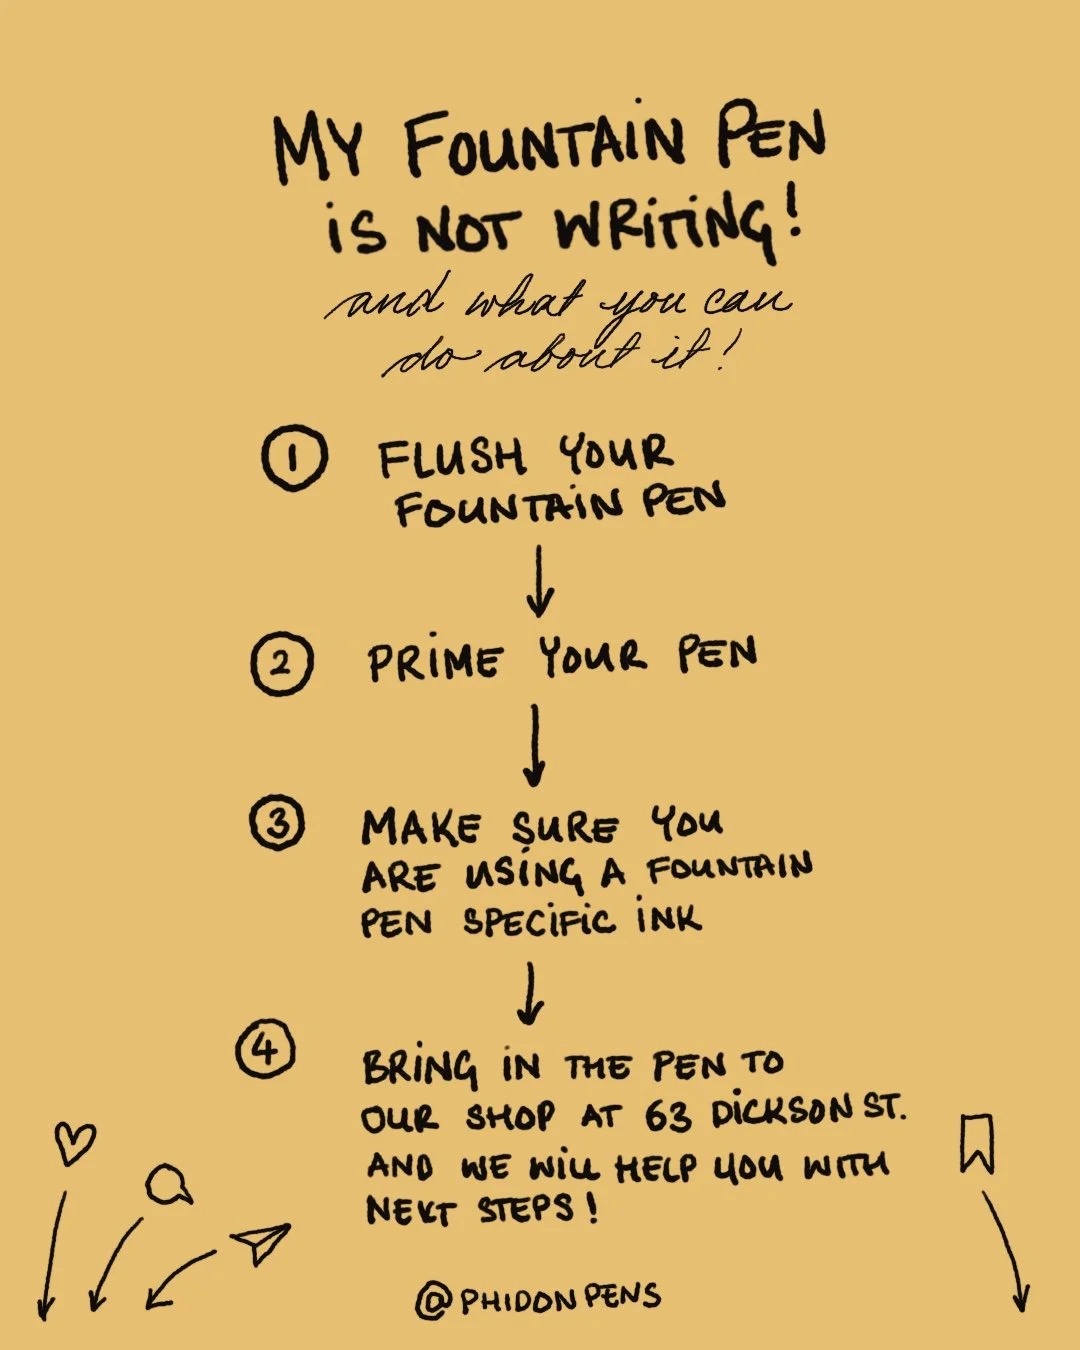 MY FOUNTAIN PEN
iS NOT WRiTiNG!
and what you can
do about it!
1 FLUSH YOUR
FOUNTAiN PEN
2 PRiME YOUR PEN
3 MAKE SURE YOU
ARE USiNG A FOUNTAIN
PEN SPECiFiC iNK
4 BRiNG iN THE PEN TO
OUR SHOP AT 63 DiCKSON ST.
AND WE WiLL HELP YOU WITH
NEXT STEPS!
@PHIDON PENS